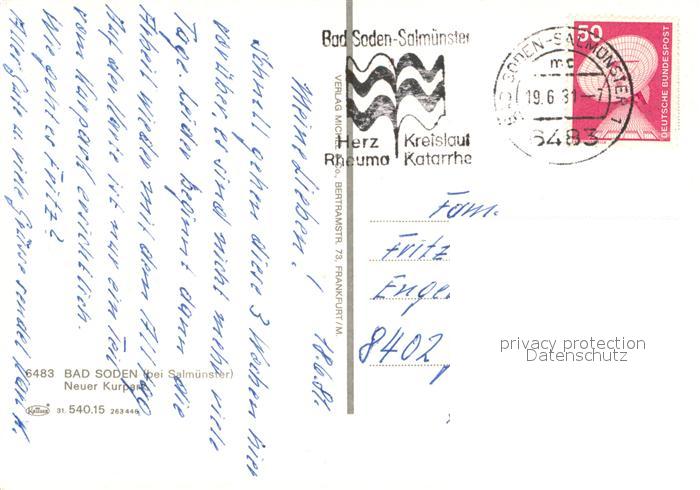 Bad Soden-Salmünster
Herz Kreislauf
Rheuma Katarrhe
BAD SODEN-SALMÜNSTER 1
mc
19.6.81-7
6483
50
DEUTSCHE BUNDESPOST
18.6.81
Meine Lieben!
Schnell gehen diese 3 Wochen hier
vorüber, es sind nicht mehr viele
Tage. Leider beginnt dann die
Arbeit wieder mit dem Alltag
Auf der Karte ist nur ein Teil
vom Kurpark ersichtlich.
Wie geht es Fritz?
Alles Gute u. viele Grüsse sendet
VERLAG Co., BERTRAMSTR. 73, FRANKFURT/M.
Fam.
Fritz
Enge
8402
privacy protection
Datenschutz
6483 BAD SODEN (bei Salmünster)
Neuer Kurpark
31. 540.15 263446